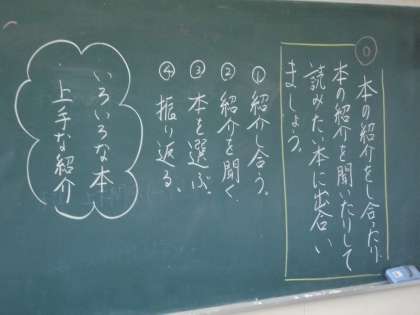 ◎
本の紹介をし合ったり、
本の紹介を聞いたりして
読みたい本に出合い
ましょう。
① 紹介し合う。
② 紹介を聞く。
③ 本を選ぶ。
④ 振り返る。
いろいろな本
上手な紹介